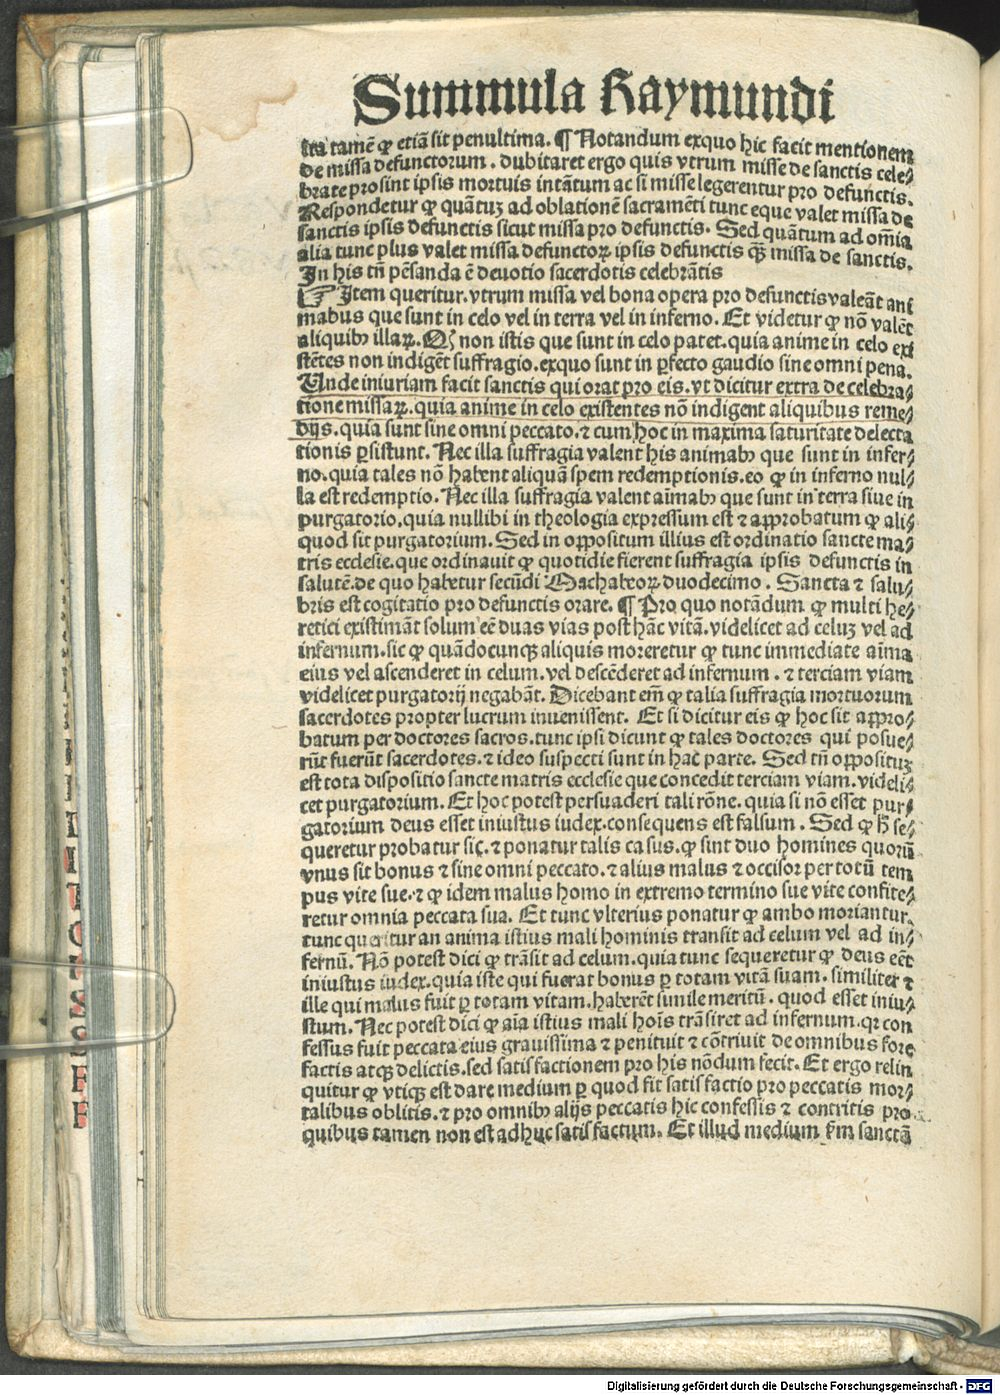 Summula Raymundi
ita tamē ꝙ etiā sit penultima. ¶ Notandum exquo hic facit mentionem
de missa defunctorum. dubitaret ergo quis vtrum misse de sanctis cele⸗
brate prosint ipsis mortuis intātum ac si misse legerentur pro defunctis.
Respondetur ꝙ quātuꝫ ad oblationē sacramēti tunc eque valet missa de
sanctis ipsis defunctis sicut missa pro defunctis. Sed quātum ad om̄ia
alia tunc plus valet missa defunctoꝝ ipsis defunctis qᷓꝫ missa de sanctis.
In his tn̄ pēsanda ē deuotio sacerdotis celebrātis
☞ Item queritur. vtrum missa vel bona opera pro defunctis valeāt ani
mabus que sunt in celo vel in terra vel in inferno. Et videtur ꝙ nō valēt
aliquibꝫ illaꝝ. Qꝛ non istis que sunt in celo patet. quia anime in celo exi
stētes non indigēt suffragio. exquo sunt in ꝑfecto gaudio sine omni pena.
Unde iniuriam facit sanctis qui orat pro eis. vt dicitur extra de celebra⸗
tione missaꝝ. quia anime in celo existentes nō indigent aliquibus reme⸗
dijs. quia sunt sine omni peccato. ⁊ cum hoc in maxima saturitate delecta
tionis ꝑsistunt. Nec illa suffragia valent his animabꝫ que sunt in infer⸗
no. quia tales nō habent aliquā spem redemptionis. eo ꝙ in inferno nul⸗
la est redemptio. Nec illa suffragia valent aīmabꝫ que sunt in terra siue in
purgatorio. quia nullibi in theologia expressum est ⁊ approbatum ꝙ ali⸗
quod sit purgatorium. Sed in oppositum illius est ordinatio sancte ma⸗
tris ecclesie. que ordinauit ꝙ quotidie fierent suffragia ipsis defunctis in
salutē. de quo habetur secūdi Machabeoꝝ duodecimo. Sancta ⁊ salu⸗
bris est cogitatio pro defunctis orare. ¶ Pro quo notādum ꝙ multi he⸗
retici existimāt solum eē duas vias post hāc vitā. videlicet ad celuꝫ vel ad
infernum. sic ꝙ quādocunqꝫ aliquis moreretur ꝙ tunc immediate aīma
eius vel ascenderet in celum. vel descēderet ad infernum. ⁊ terciam viam
videlicet purgatorij negabāt. Dicebant em̄ ꝙ talia suffragia mortuorum
sacerdotes propter lucrum inuenissent. Et si dicitur eis ꝙ hoc sit appro⸗
batum per doctores sacros. tunc ipsi dicunt ꝙ tales doctores qui posue⸗
rūt fuerūt sacerdotes. ⁊ ideo suspecti sunt in hac parte. Sed tn̄ oppositūꝫ
est tota dispositio sancte matris ecclesie que concedit terciam viam. videli⸗
cet purgatorium. Et hoc potest persuaderi tali rōne. quia si nō esset pur⸗
gatorium deus esset iniustus iudex. consequens est falsum. Sed ꝙ h̄ se⸗
queretur probatur sic. ⁊ ponatur talis casus. ꝙ sint duo homines quorū
vnus sit bonus ⁊ sine omni peccato. ⁊ alius malus ⁊ occisor per totū tem
pus vite sue. ⁊ ꝙ idem malus homo in extremo termino sue vite confite⸗
retur omnia peccata sua. Et tunc vlterius ponatur ꝙ ambo moriantur.
tunc queritur an anima istius mali hominis transit ad celum vel ad in⸗
fernū. Nō potest dici ꝙ trāsit ad celum. quia tunc sequeretur ꝙ deus eēt
iniustus iudex. quia iste qui fuerat bonus ꝑ totam vitā suam. similiter ⁊
ille qui malus fuit ꝑ totam vitam. haberēt simile meritū. quod esset iniu⸗
stum. Nec potest dici ꝙ aīa istius mali hoīs trāsiret ad infernum. qꝛ con
fessus fuit peccata eius grauissima ⁊ penituit ⁊ cōtriuit de omnibus fore
factis atqꝫ delictis. sed satisfactionem pro his nōdum fecit. Et ergo relin
quitur ꝙ vtiqꝫ est dare medium ꝑ quod fit satisfactio pro peccatis mor⸗
talibus oblitis. ⁊ pro omnibꝫ alijs peccatis hic confessis ⁊ contritis pro
quibus tamen non est adhuc satisfactum. Et illud medium ẜm sanctā
Digitalisierung gefördert durch die Deutsche Forschungsgemeinschaft - DFG